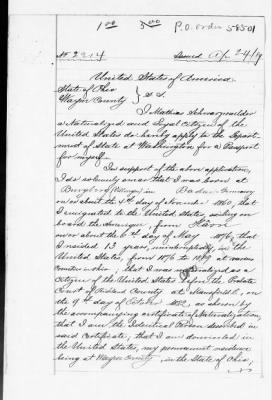 1 00 5 00 P.O. order 58501
No 2214 Issued Ap. 24/89
United States of America
State of Ohio } S.S.
Wayne County
I Mathias Schwarzwalder
a Naturalized and Loyal Citizen of the
United States do hereby apply to the Depart-
ment of State at Washington for a Passport
for myself.
In support of the above application,
I do solemnly swear that I was born at
(Village) in Baden Germany
on or about the 4th day of November 1860, that
I emigrated to the United States, sailing on
board the Amerique, from Havre
on or about the 6th day of May 1876, that
I resided 13 years, uninterruptedly, in the
United States, from 1876 to 1889 at
that I was naturalized as a
Citizen of the United States before the Probate
Court of Richland County at Mansfield, O,
on the 9th day of October 1882, as shown by
the accompanying certificate of Naturalization,
that I am the Identical Person described in
said Certificate, that I am domiciled in
the United States, my permanent residence
being at Wayne County, in the State of Ohio,